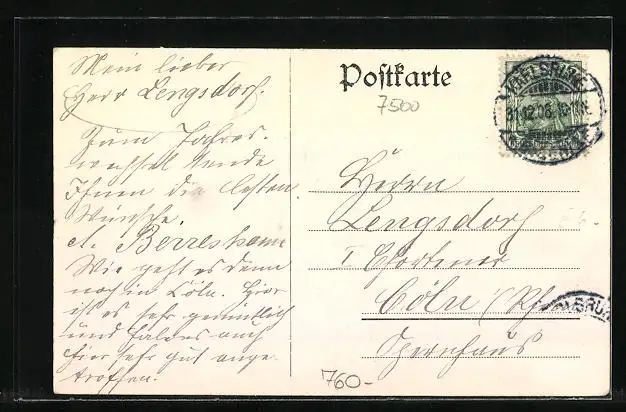 Mein lieber
Herr Lengsdorf.
Zum Jahres-
wechsel sende
Ihnen die besten
Wünsche.
A. Berresheim
Wie geht es denn
noch in Cöln. Hier
ist es sehr gemütlich
und habe es auch
hier sehr gut ange
troffen.
Postkarte
7500
KARLSRUHE
31.12.06
Herrn
Lengsdorf
I
Cöln (Rh
Opernhaus
760-